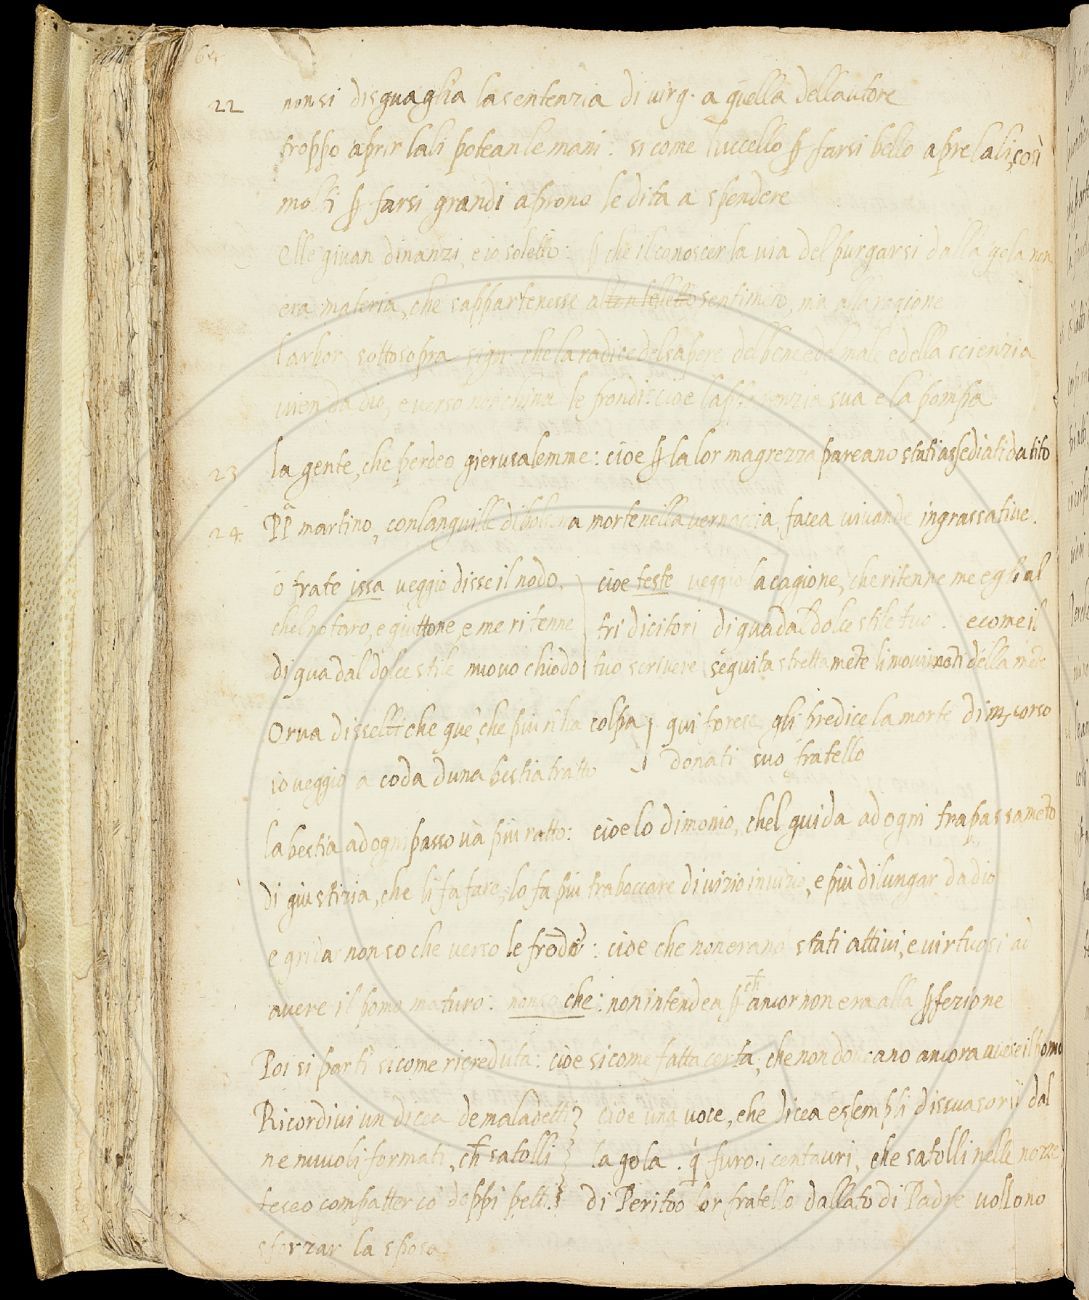 64
22 non si disguaglia la sentenzia di virg. a quella dellautore
troppo aprir lali potean le mani: si come luccello ꝑ farsi bello apre lali, così
molti ꝑ farsi grandi aprono le dita a spendere
elle givan dinanzi, e io soletto: ꝑ che il conoscer la via del purgarsi dalla gola non
era materia, che sappartenesse al sentimēto, ma alla ragione
larbor sottosopra sign. che la radice del sapere del bene e del male e della scienzia
vien da dio, e verso noi china le frondi: cioe lapparenzia sua e la pompa
23 la gente, che perdeo gierusalemme: cioe ꝑ la lor magrezza pareano stati assediati da tito
24 PP martino, con languille di bolsena morte nella vernaccia, facea vivande ingrassative.
o frate issa veggio disse il nodo. cioe teste veggio la cagione, che ritenne me e gli al
chel notaro, e guittone, e me ritenne tri dicitori di qua dal dolce stile tuo. e come il
di qua dal dolce stile nuovo chiodo tuo scrivere seguita strettamēte li movimēti della mēte
Or va dissel ei che que, che piu nha colpa, qui forese gli predice la morte di m corso
io veggio a coda duna bestia tratto donati suo fratello
la bestia ad ogni passo và piu ratto: cioe lo dimonio, chel guida ad ogni trapassamēto
di giustizia, che li fa fare, lo fa piu traboccare di vizio in vizio, e piu dilungar da dio
e gridar non so che verso le frōde: cioe che non erano stati attivi, e virtuosi ad
avere il pomo maturo. non so che: non intendea ꝑ ch̄ ancor non era alla ꝑfezione
Poi si partì si come ricreduta: cioe si come fatta certa, che non doveano ancora avere il pomo
Ricordivi un dicea de maladetti cioe una voce, che dicea essempli dissuasorii dal
ne nuvoli formati, ch̄ satolli la gola. q̄ furo i centauri, che satolli nelle nozze
teseo combatter co doppi petti di Peritoo lor fratello dallato di Padre vollono
sforzar la sposa